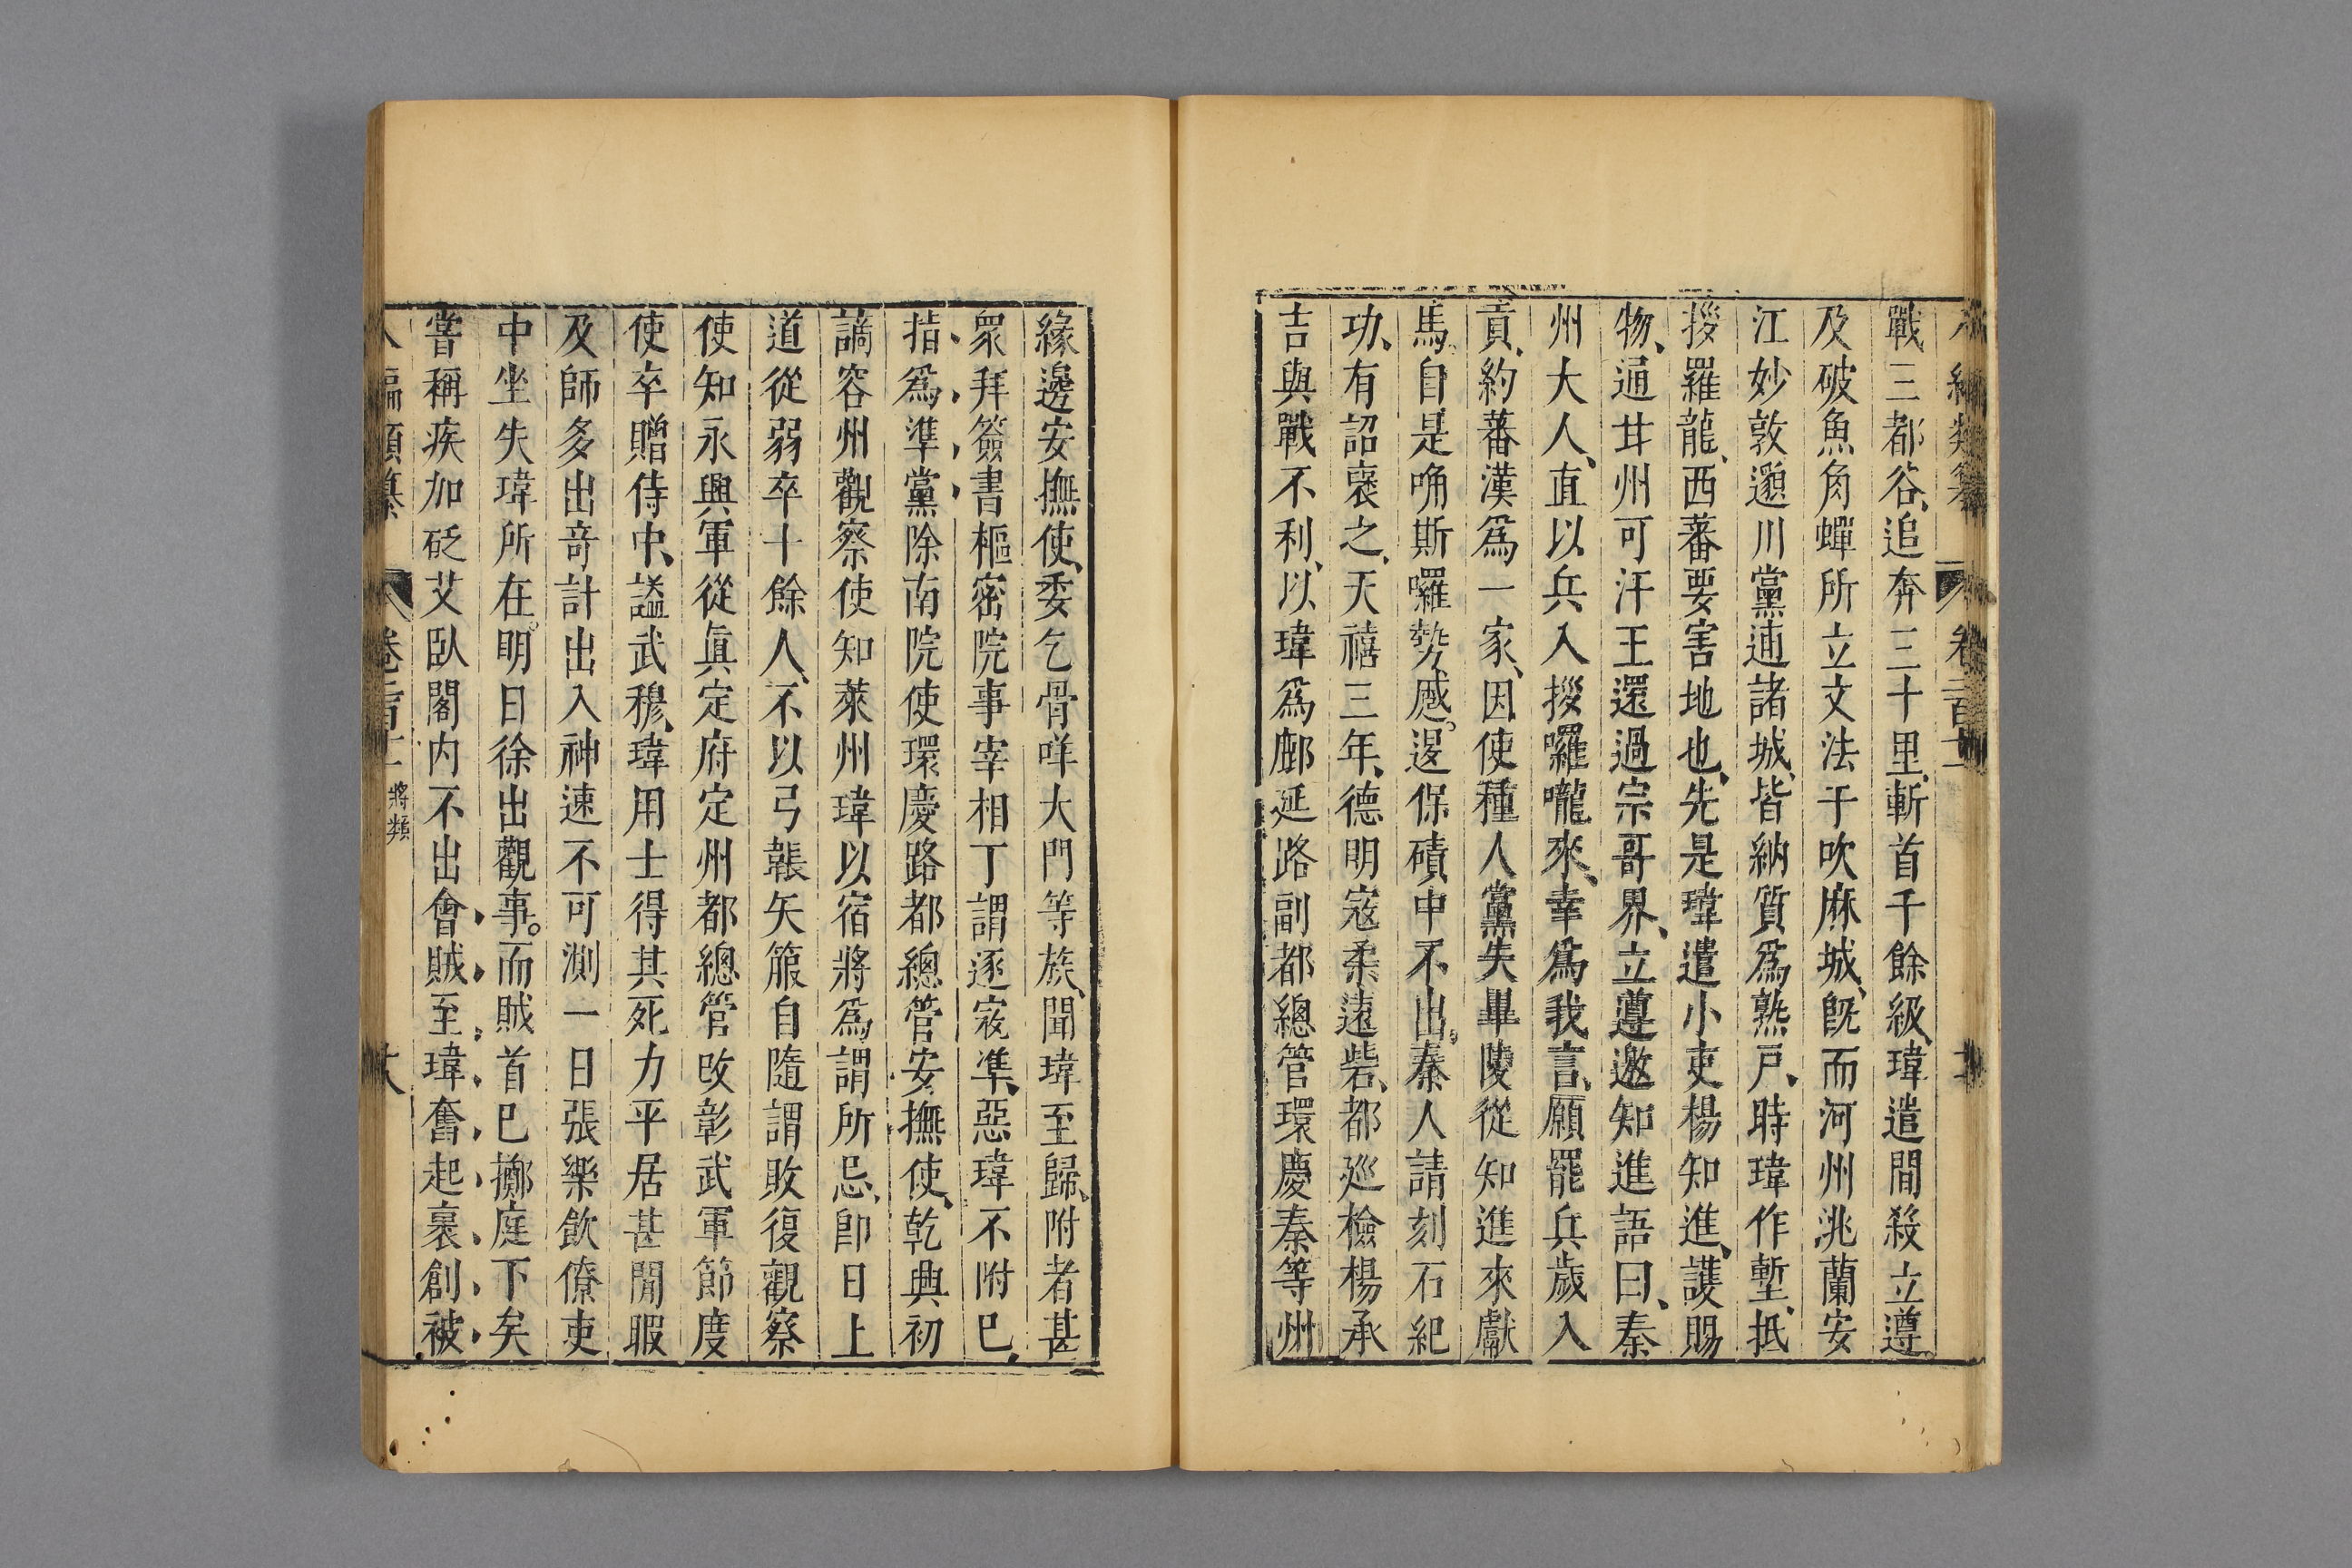 戰三都谷、追奔三十里、斬首千餘級、瑋遣間殺立遵。
及破魚角蟬所立文法于吹麻城、旣而河州洮蘭安
江妙敦邈川黨逋諸城、皆納質爲熟戸、時瑋作塹、抵
拶羅龍、西蕃要害地也、先是瑋遣小吏楊知進、護賜
物、通甘州可汗王還過宗哥界、立遵邀知進語曰、秦
州大人、直以兵入拶囉嚨來、幸爲我言、願罷兵歲入
貢、約蕃漢爲一家、因使種人黨失畢陵從知進來獻
馬。自是唃斯囉勢蹙。退保磧中不出。秦人請刻石紀
功、有詔褒之、天禧三年、德明寇柔遠砦、都巡檢楊承
吉與戰不利、以瑋爲鄜延路副都總管環慶秦等州
緣邊安撫使、委乞骨咩大門等族、聞瑋至歸、附者甚
衆拜簽書樞密院事宰相丁謂逐寇準、惡瑋不附已、
指爲準黨除南院使環慶路都總管安撫使、乾興初
謫容州觀察使知萊州瑋以宿將爲謂所忌、卽日上
道從弱卒十餘人、不以弓韔矢箙自隨謂敗復觀察
使知永興軍從眞定府定州都總管改彰武軍節度
使卒贈侍中、謚武穆、瑋用士得其死力平居甚閒暇
及師多出竒計出入神速不可測一日張樂飲僚吏
中坐失瑋所在。明日徐出觀事。而賊首已擲庭下矣
嘗稱疾加砭艾臥閣内不出會賊至瑋奮起裹創被
卷二百十一 將類